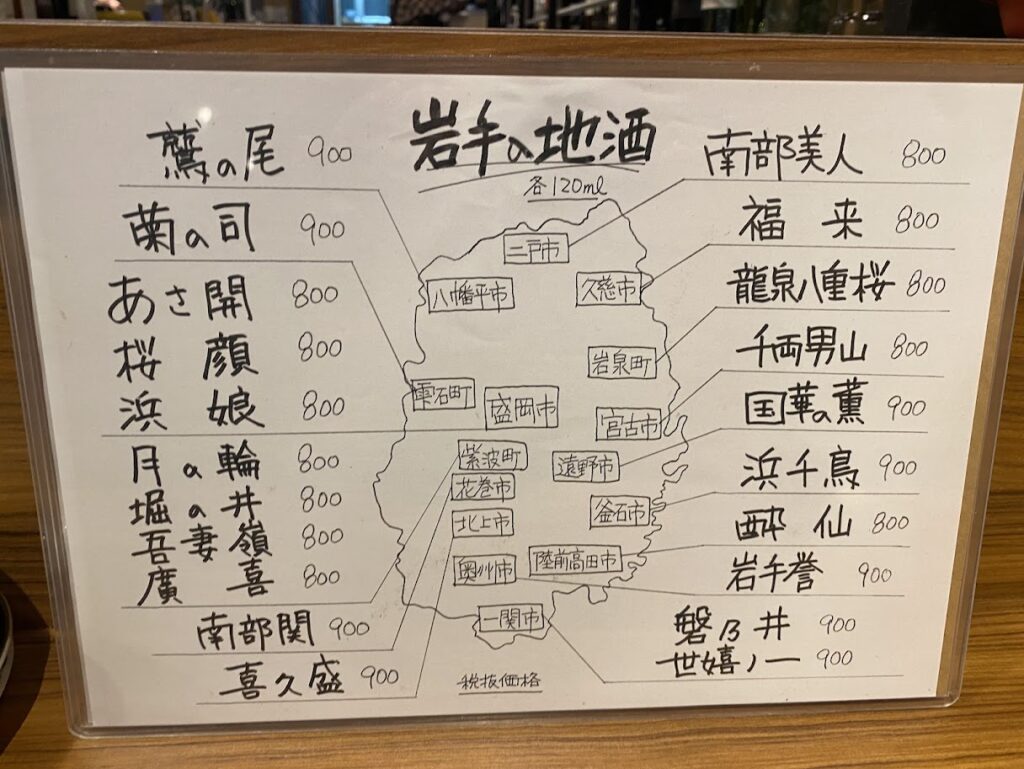 岩手の地酒
各120ml
鷲の尾 900
菊の司 900
あさ開 800
桜顔 800
浜娘 800
月の輪 800
堀の井 800
吾妻嶺 800
廣喜 800
南部関 900
喜久盛 900
二戸市
八幡平市
久慈市
岩泉町
雫石町
盛岡市
宮古市
紫波町
遠野市
花巻市
釜石市
北上市
陸前高田市
奥州市
一関市
税抜価格
南部美人 800
福来 800
龍泉八重桜 800
千両男山 800
国華の薫 900
浜千鳥 900
酔仙 800
岩手誉 900
磐乃井 900
世嬉ノ一 900